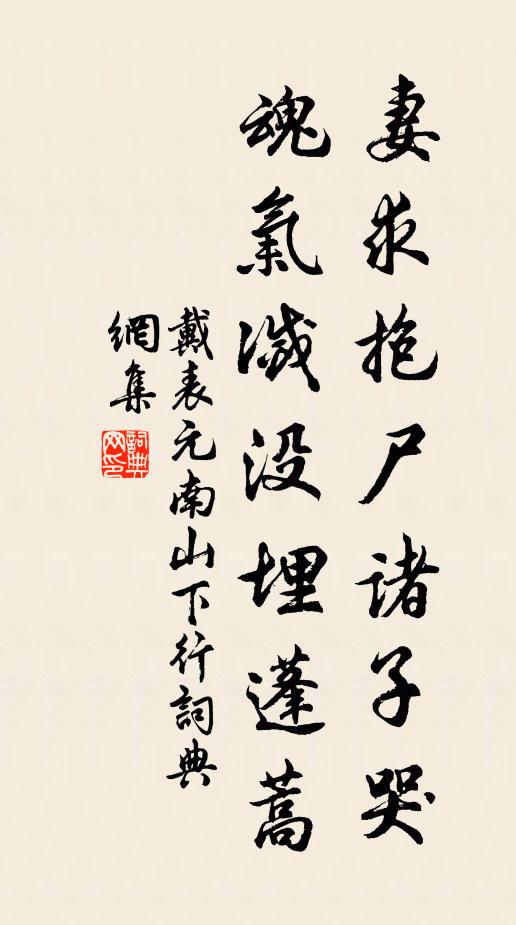 妻求抱尸諸子哭
魂氣滅没埋蓬蒿
戴表元南山下行詞典
網集
詞典网印